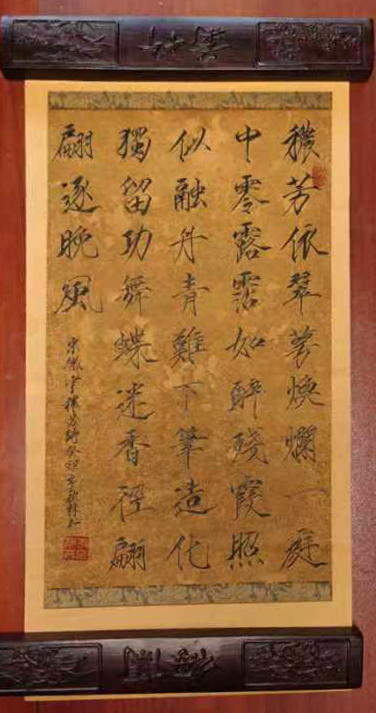 穠芳依翠萼焕爛一庭
中零露霑如醉殘霞照
似融丹青難下筆造化
獨留功舞蝶迷香徑翩
翩逐晚風
宋徽宗穠芳詩